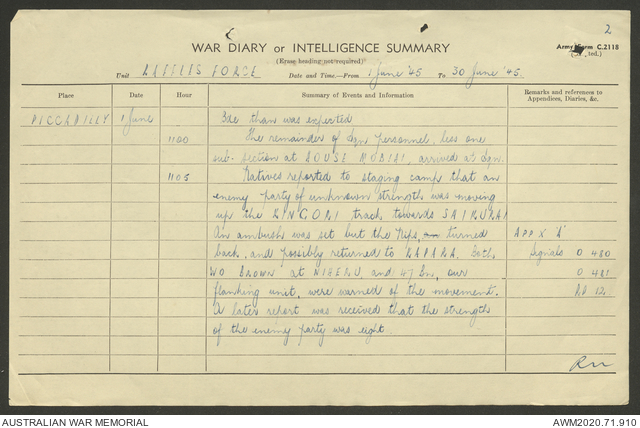 2
WAR DIARY or INTELLIGENCE SUMMARY
Army Form C.2118
(Erase heading not required)
Unit RAFFLES FORCE Date and Time.—From 1 June '45 To 30 June '45.
Place Date Hour Summary of Events and Information Remarks and references to Appendices, Diaries, &c.
PICCADILLY 1 June Bde than was expected
1100 The remainder of Sqn personnel, less one
sub-section at HOUSE MOBIAI, arrived at Sqn.
1105 Natives reported to staging camp that an
enemy party of unknown strength was moving
up the track towards
An ambush was set but the Nips, turned APP X 'A'
back, and possibly returned to KAPANA. Both Signals O 480
WO BROWN at and 47 Bn, our O 481
flanking unit, were warned of the movement.
A later report was received that the strength
of the enemy party was eight.
AUSTRALIAN WAR MEMORIAL AWM2020.71.910